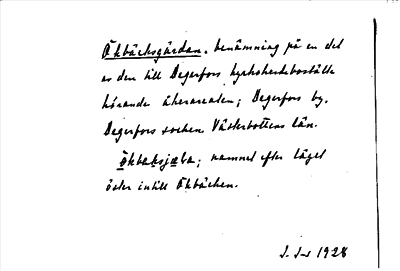 Åkbäcksgärdan, benämning på en del
av den till Degerfors kyrkoherdeboställe
hörande åkerarealen; Degerfors by,
Degerfors socken Västerbottens län.
namnet efter läget
öster intill Åkbäcken.
1928